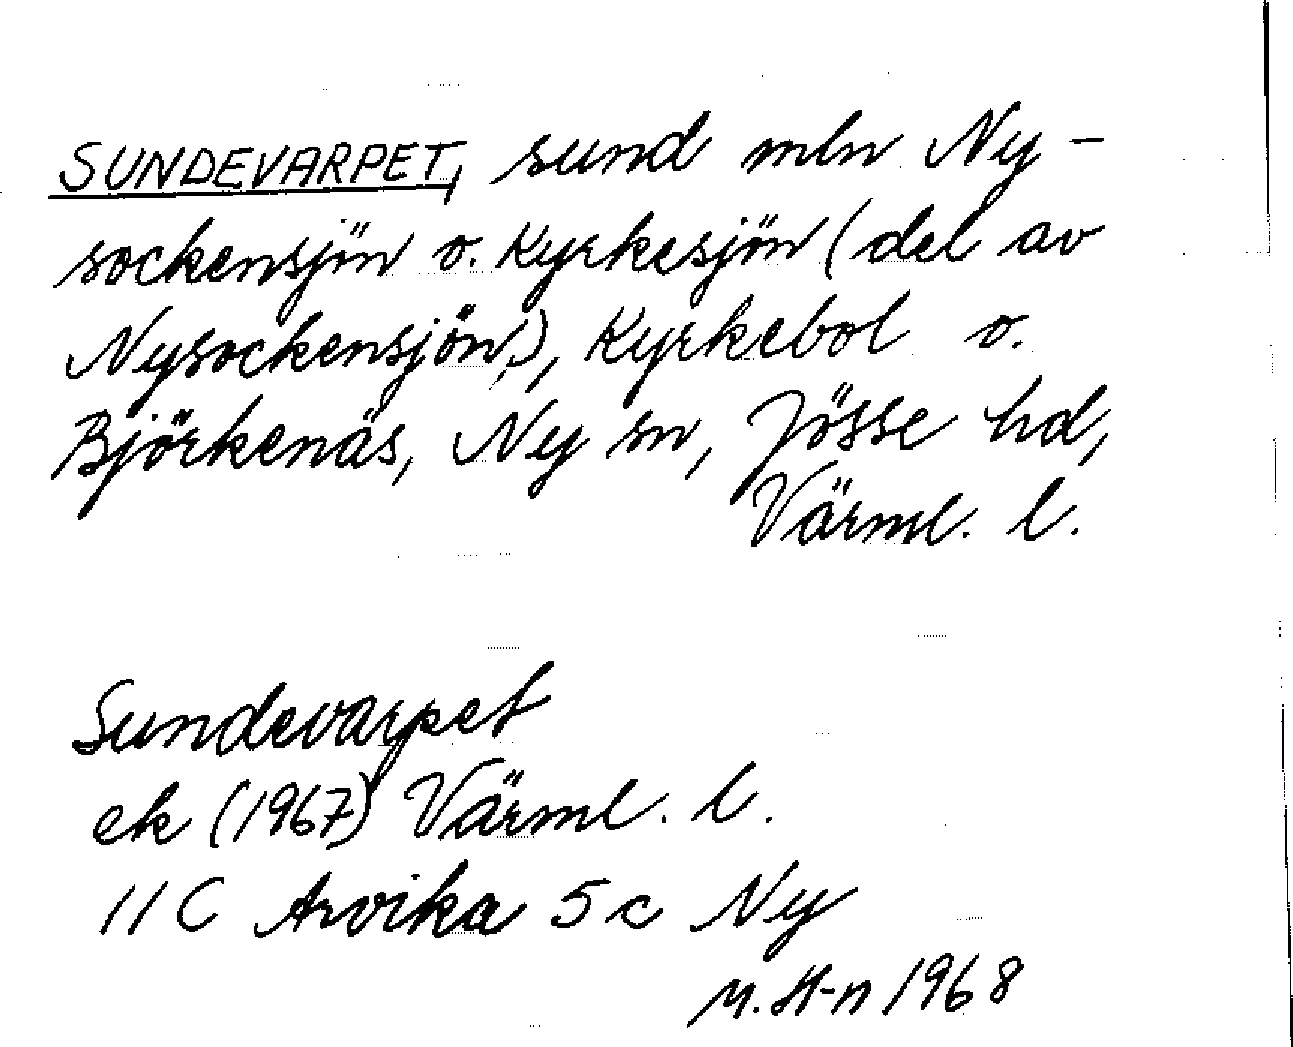 SUNDEVARPET, sund mln Ny-
sockensjön o. Kyrkesjön (del av
Nysockensjön), Kyrkebol o.
Björkenäs, Ny sn, Jösse hd,
Värml. l.
Sundevarpet
ek (1967) Värml. l.
11 C Arvika 5 c Ny
M. H-n 1968